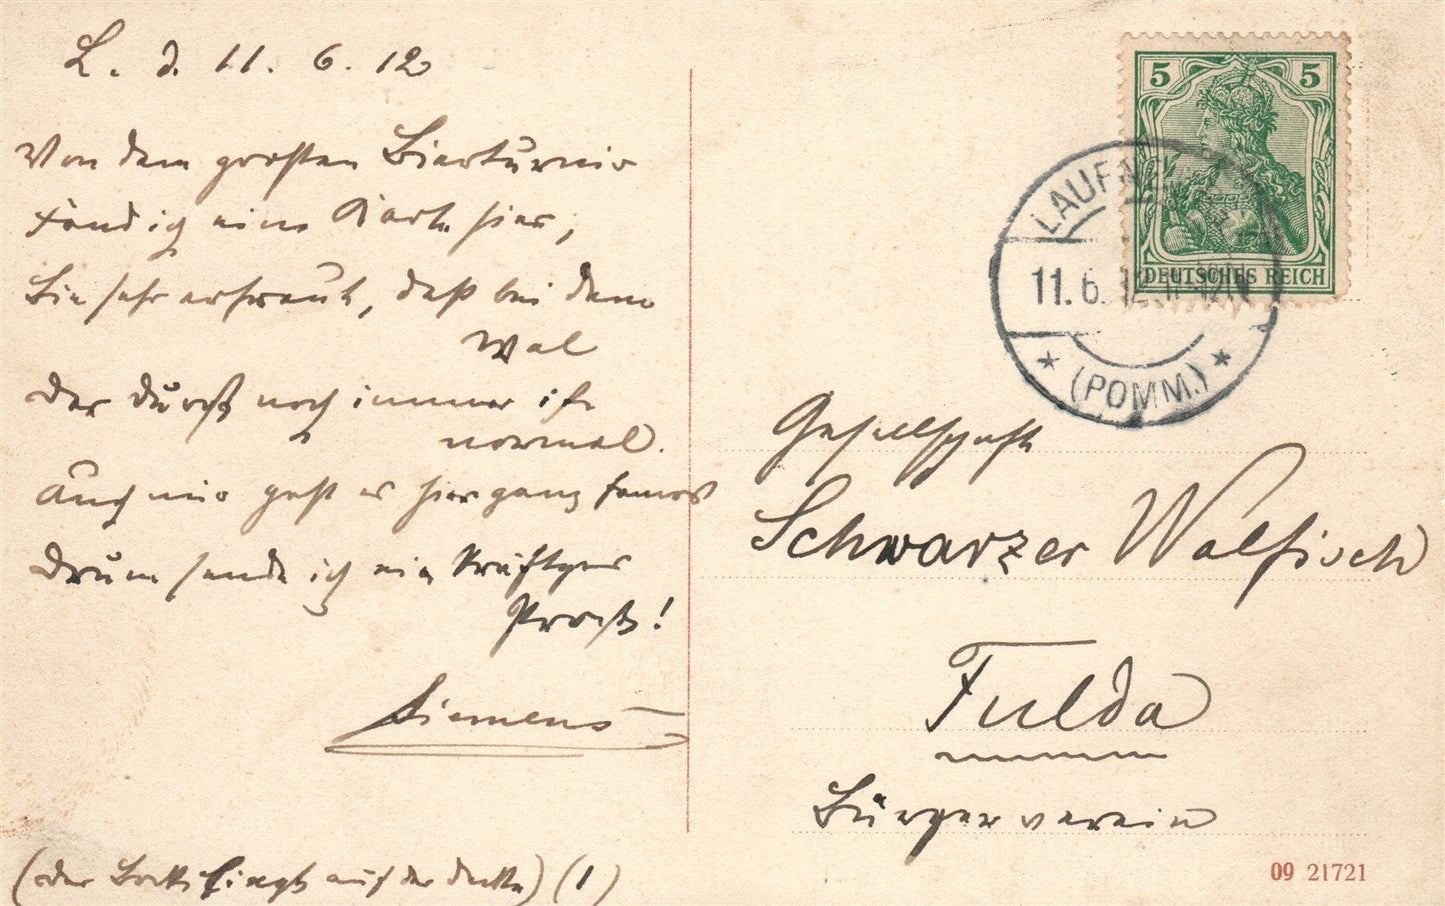 L. d. 11. 6. 12
Von dem großen Bierturnir
fand ich eine Karte hier,
Die sehr erfreut, daß bei dem
Wal
der Durst noch immer ist
normal.
Auch mir geht es hier ganz famos
drum sende ich ein kräftges
Prost!
Siemens
(der auf der) (1)
5 5
DEUTSCHES REICH
LAUF
11. 6. 12
(POMM.)
Gesellschaft
Schwarzer Walfisch
Fulda
Bürgerverein
09 21721